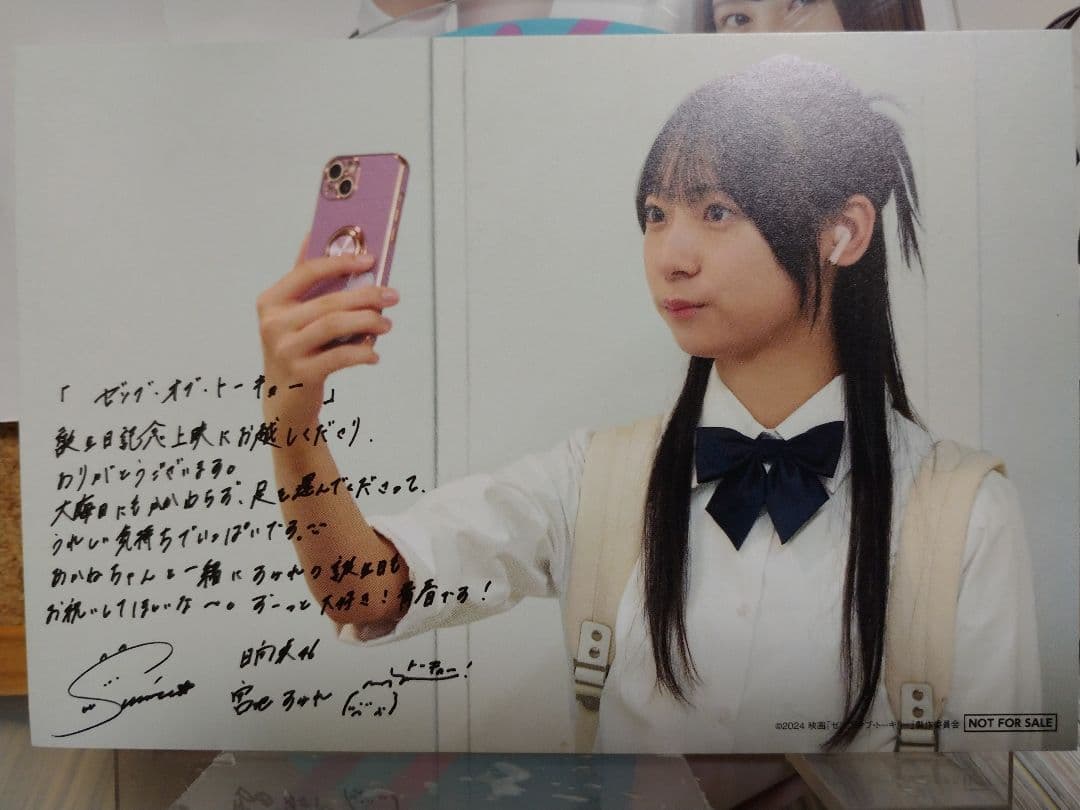 「ゼンブ・オブ・トーキョー」
誕生日記念上映にお越しくださり、
ありがとうございます。
大晦日にもかかわらず、足を運んでくださって、
うれしい気持ちでいっぱいです。
あかねちゃんと一緒にすみれの誕生日も
お祝いしてほしいな〜。ずーっと大好き！青春です！
Sumire
日向坂46
宮地すみれ
トーキョー！
©2024 映画「ゼンブ・オブ・トーキョー」製作委員会
NOT FOR SALE